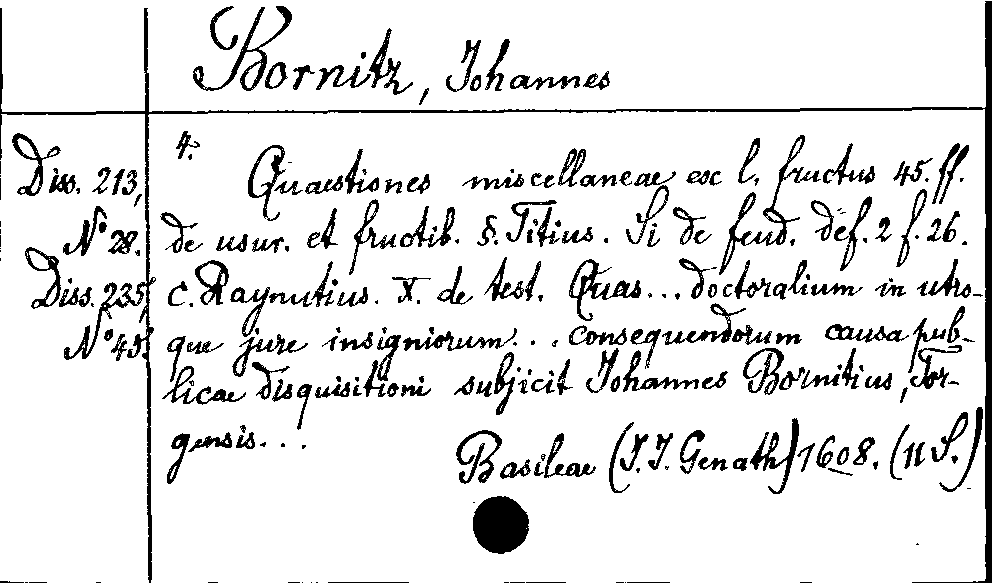 Bornitz, Johannes
4.
Diss. 213, Quaestiones miscellaneae ex l. fructus 45. ff.
N° 28. de usur. et fructib. §. Titius. Si de feud. def. 2 f. 26.
Diss. 235, c. Raynutius. X. de test. Quas... doctoralium in utro-
N° 45. que jure insigniorum... consequendorum causa pub-
licae disquisitioni subjicit Johannes Bornitius, Tor-
gensis...
Basileae (J. J. Genath) 1608. (11 S.)